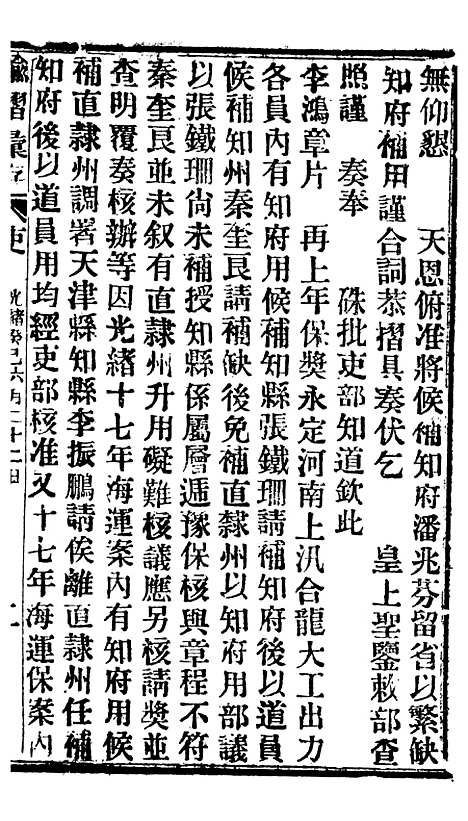 無仰懇　　天恩俯准將候補知府潘兆芬留省以繁缺
知府補用謹合詞恭摺具奏伏乞　　皇上聖鑒敕部查
照謹　　奏奉　　硃批吏部知道欽此
李鴻章片　再上年保獎永定河南上汛合龍大工出力
各員內有知府用候補知縣張鐵珊請補知府後以道員
候補知州秦奎良請補缺後免補直隸州以知府用部議
以張鐵珊尚未補授知縣係屬層遞豫保核與章程不符
秦奎良並未叙有直隸州升用礙難核議應另核請獎並
查明覆奏核辦等因光緒十七年海運案內有知府用候
補直隸州調署天津縣知縣李振鵬請俟離直隸州任補
知府後以道員用均經吏部核准又十七年海運保案內
諭摺彙存　吏　光緒癸巳六月二十二日